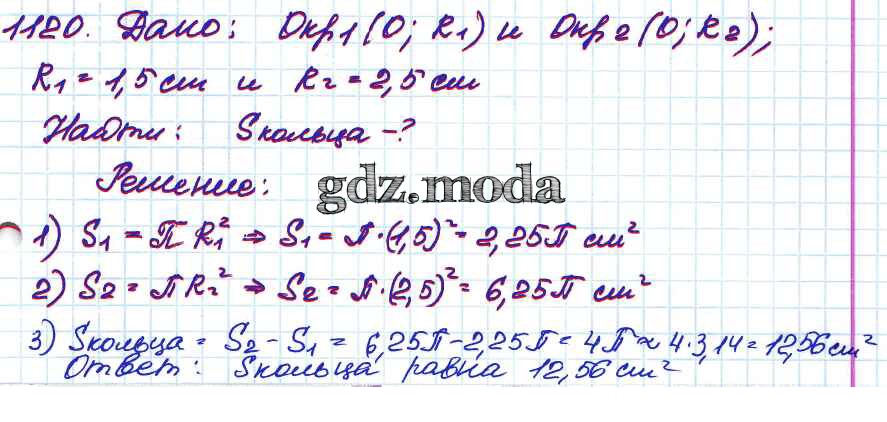 1120. Дано: Окр1(O; R1) и Окр2(O; R2);
R1 = 1,5 см и R2 = 2,5 см
Найти: Sкольца -?
Решение:
gdz.moda
1) S1 = ПR1² ⇒ S1 = П·(1,5)² = 2,25П см²
2) S2 = ПR2² ⇒ S2 = П·(2,5)² = 6,25П см²
3) Sкольца = S2 - S1 = 6,25П - 2,25П = 4П ≈ 4·3,14 = 12,56 см²
Ответ: Sкольца равна 12,56 см²